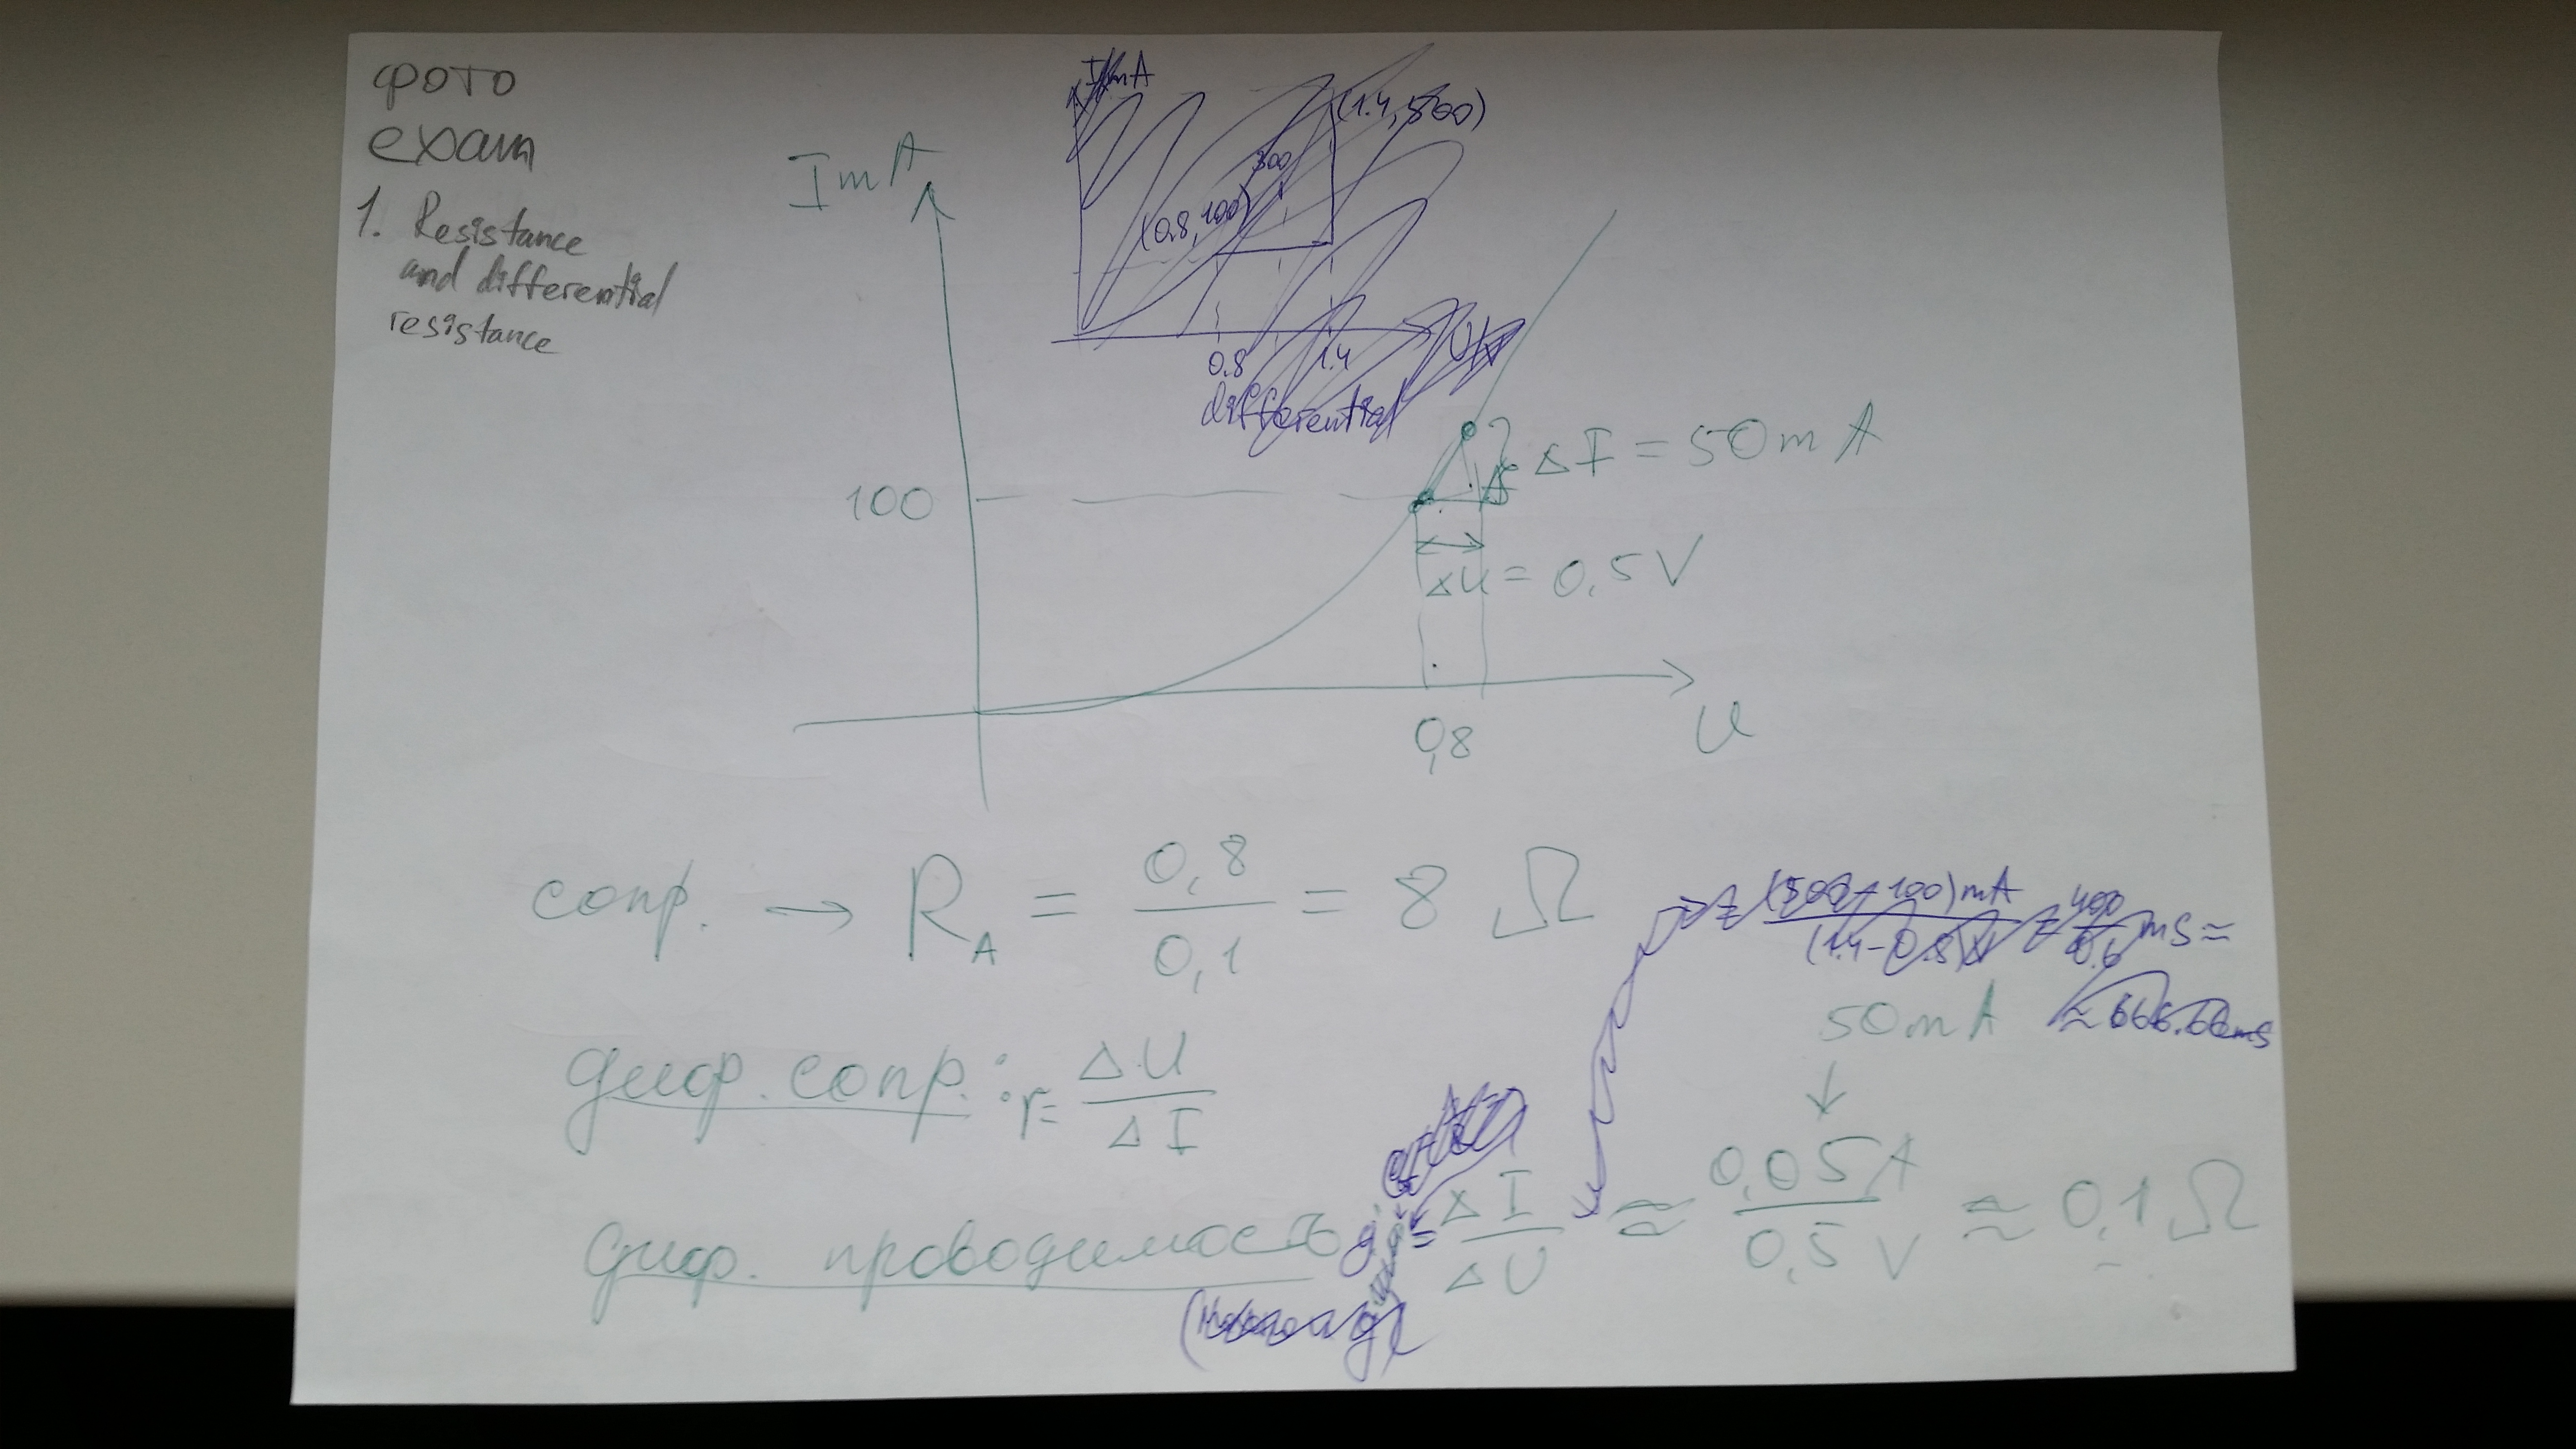 фото
exam
1. Resistance
and differential
resistance
I mA
(1.4, 500)
300
(0.8, 100)
0.8 1.4 U,V
differential
I mA
100
ΔI = 50 mA
ΔU = 0,5 V
0,8
U
сопр. → R_A = 0,8 / 0,1 = 8 Ω
(500-100)mA / (1.4-0.8)V = 400 / 0.6 mS ≈
≈ 666.66 mS
50 mA
↓
диф. сопр.: r = ΔU / ΔI
диф. проводимость g = ΔI / ΔU ≈ 0,05 A / 0,5 V ≈ 0,1 Ω